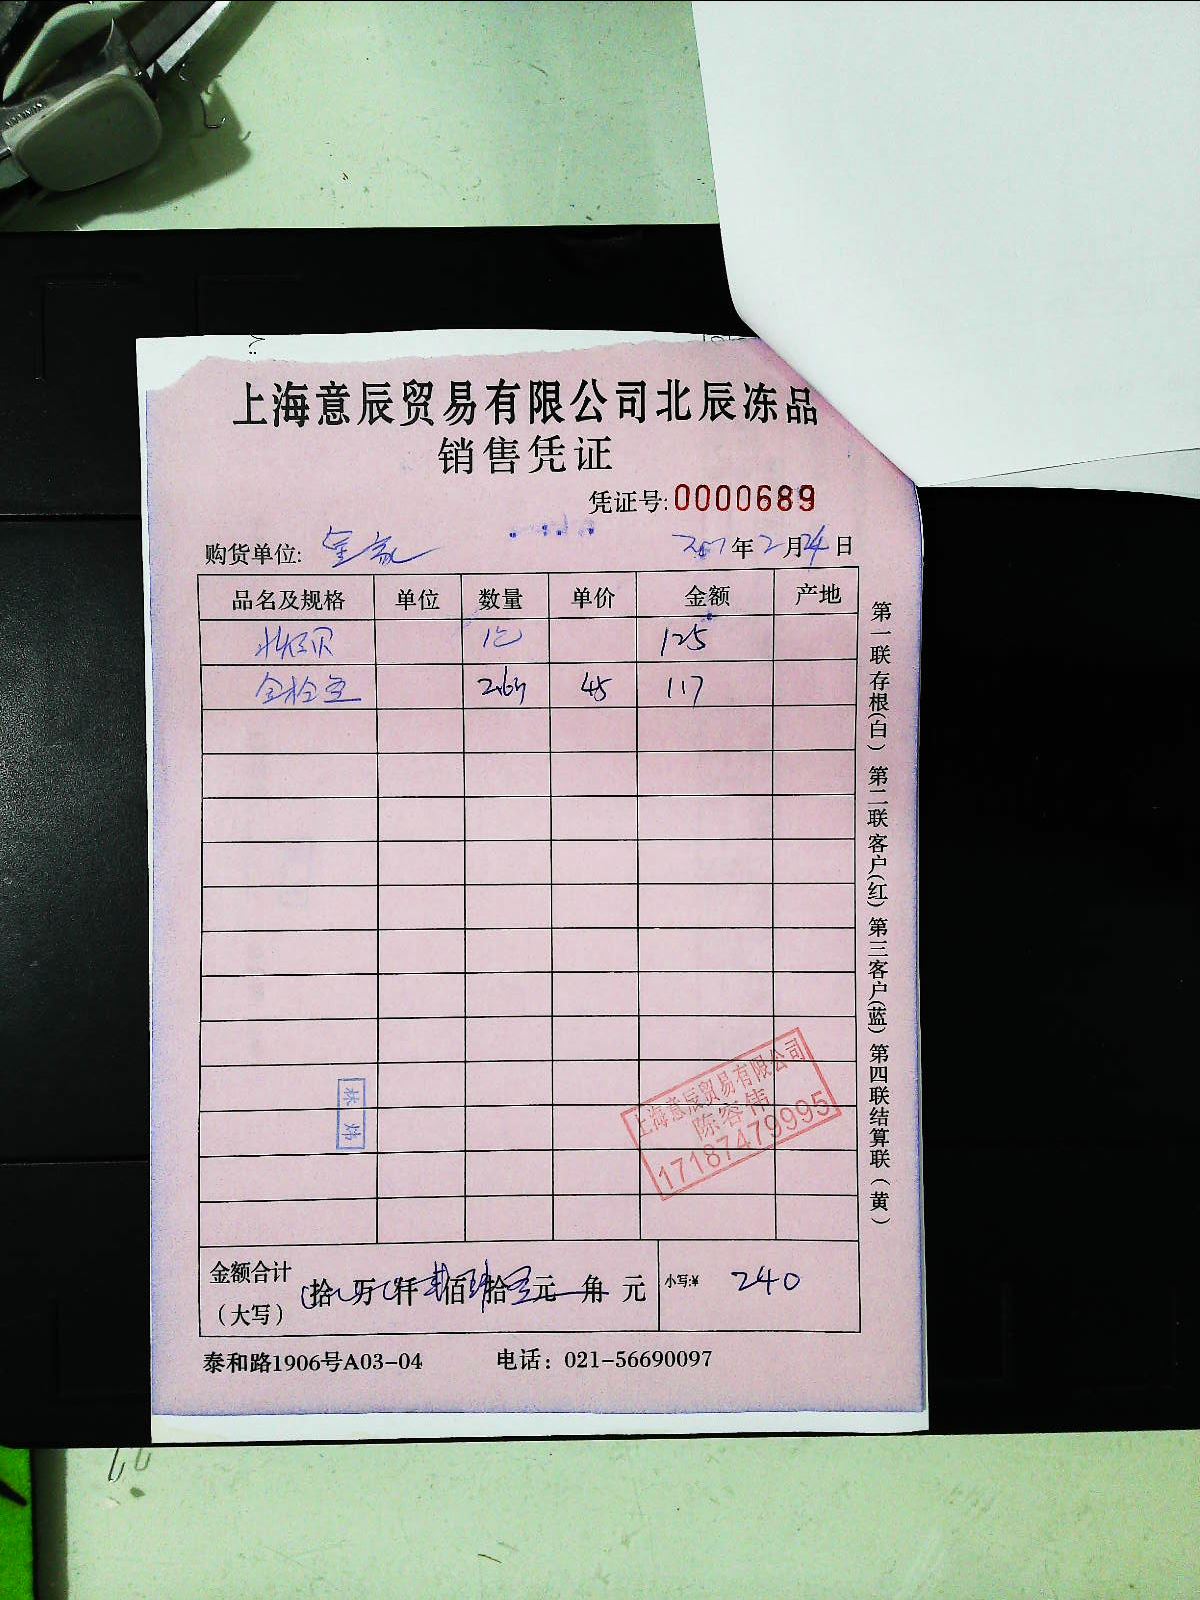 上海意辰贸易有限公司北辰冻品
销售凭证
凭证号:0000689
购货单位: 年2月24日
品名及规格 单位 数量 单价 金额 产地
北极贝 125
2.6 45 117
金额合计 拾 万 仟 佰 拾 元 角 元 小写:¥ 240
(大写)
泰和路1906号A03-04 电话：021-56690097
第一联存根(白) 第二联客户(红) 第三客户(蓝) 第四联结算联(黄)
林炜
上海意辰贸易有限公司
陈容伟
17187479995